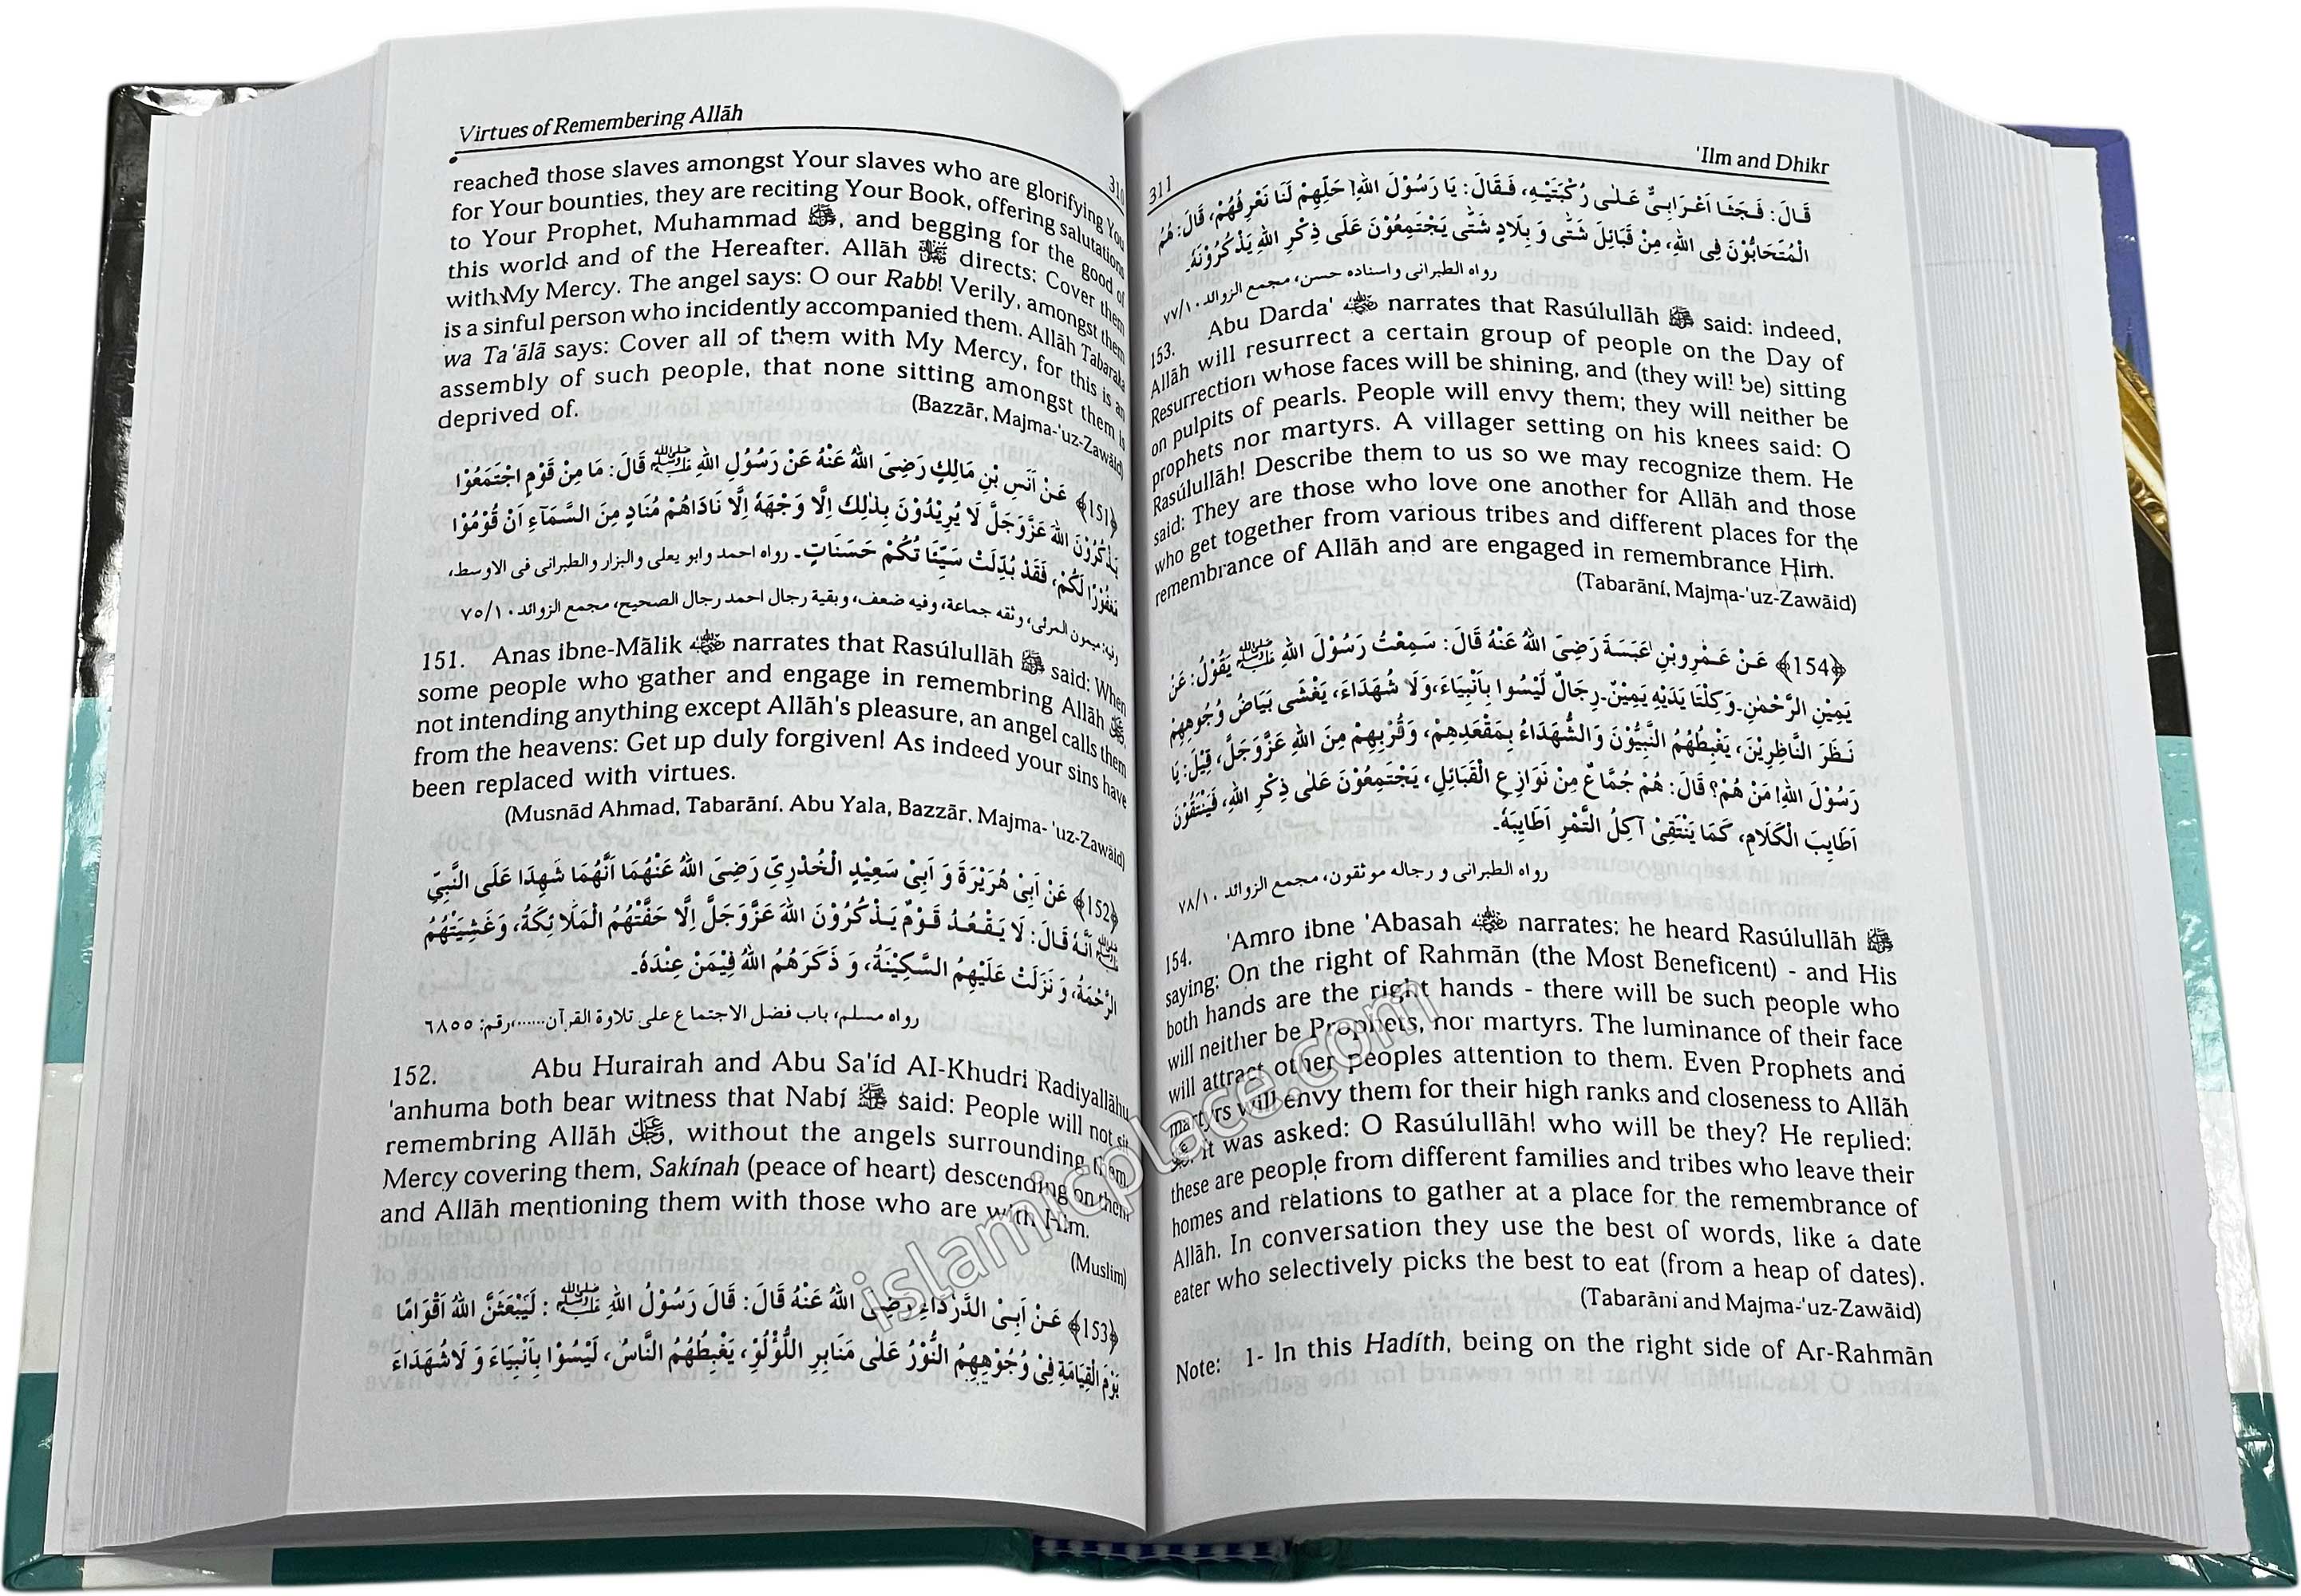 Virtues of Remembering Allāh
310
reached those slaves amongst Your slaves who are glorifying You
for Your bounties, they are reciting Your Book, offering salutations
to Your Prophet, Muhammad ﷺ, and begging for the good of
this world and of the Hereafter. Allāh directs: Cover them
with My Mercy. The angel says: O our Rabb! Verily, amongst them
is a sinful person who incidently accompanied them. Allāh Tabaraka
wa Ta'ālā says: Cover all of them with My Mercy, for this is an
assembly of such people, that none sitting amongst them is
deprived of.
(Bazzār, Majma-'uz-Zawāid)
﴿151﴾ عَنْ اَنَسِ بْنِ مَالِكٍ رَضِىَ اللهُ عَنْهُ عَنْ رَسُوْلِ اللهِ ﷺ قَالَ: مَا مِنْ قَوْمٍ اجْتَمَعُوْا
يَذْكُرُوْنَ اللهَ عَزَّوَجَلَّ لَا يُرِيْدُوْنَ بِذٰلِكَ اِلَّا وَجْهَهٗ اِلَّا نَادَاهُمْ مُنَادٍ مِنَ السَّمَآءِ اَنْ قُوْمُوْا
مَغْفُوْرًا لَكُمْ، فَقَدْ بُدِّلَتْ سَيِّئَاتُكُمْ حَسَنَاتٍ۔ رواه احمد وابو يعلى والبزار والطبرانى فى الاوسط،
وفيه: ميمون المرئى، وثقه جماعة، وفيه ضعف، وبقية رجال احمد رجال الصحيح، مجمع الزوائد ١٠/٧٥
151. Anas ibne-Mālik narrates that Rasúlullāh ﷺ said: When
some people who gather and engage in remembring Allāh,
not intending anything except Allāh's pleasure, an angel calls them
from the heavens: Get up duly forgiven! As indeed your sins have
been replaced with virtues.
(Musnād Ahmad, Tabarāní. Abu Yala, Bazzār, Majma- 'uz-Zawāid)
﴿152﴾ عَنْ اَبِىْ هُرَيْرَةَ وَ اَبِىْ سَعِيْدٍ الْخُدْرِىِّ رَضِىَ اللهُ عَنْهُمَا اَنَّهُمَا شَهِدَا عَلَى النَّبِىِّ
ﷺ اَنَّهٗ قَالَ: لَا يَقْعُدُ قَوْمٌ يَذْكُرُوْنَ اللهَ عَزَّوَجَلَّ اِلَّا حَفَّتْهُمُ الْمَلَائِكَةُ، وَغَشِيَتْهُمُ
الرَّحْمَةُ، وَ نَزَلَتْ عَلَيْهِمُ السَّكِيْنَةُ، وَ ذَكَرَهُمُ اللهُ فِيْمَنْ عِنْدَهٗ۔
رواه مسلم، باب فضل الاجتماع على تلاوة القرآن......،رقم: ٦٨٥٥
152. Abu Hurairah and Abu Sa'íd AI-Khudri Radiyallāhu
'anhuma both bear witness that Nabí ﷺ said: People will not sit
remembring Allāh, without the angels surrounding them,
Mercy covering them, Sakínah (peace of heart) descending on them
and Allāh mentioning them with those who are with Him.
(Muslim)
﴿153﴾ عَنْ اَبِىْ الدَّرْدَاءِ رَضِىَ اللهُ عَنْهُ قَالَ: قَالَ رَسُوْلُ اللهِ ﷺ : لَيَبْعَثَنَّ اللهُ اَقْوَامًا
يَوْمَ الْقِيَامَةِ فِىْ وُجُوْهِهِمُ النُّوْرُ عَلٰى مَنَابِرِ اللُّؤْلُؤِ، يَغْبِطُهُمُ النَّاسُ، لَيْسُوْا بِاَنْبِيَاءَ وَ لَا شُهَدَاءَ
311
'Ilm and Dhikr
قَالَ: فَجَثَا اَعْرَابِىٌّ عَلٰى رُكْبَتَيْهِ، فَقَالَ: يَا رَسُوْلَ اللهِ! حَلِّهِمْ لَنَا نَعْرِفُهُمْ، قَالَ: هُمُ
الْمُتَحَابُّوْنَ فِى اللهِ، مِنْ قَبَائِلَ شَتّٰى وَ بِلَادٍ شَتّٰى يَجْتَمِعُوْنَ عَلٰى ذِكْرِ اللهِ يَذْكُرُوْنَهٗ۔
رواه الطبرانى واسناده حسن، مجمع الزوائد ١٠/٧٧
153. Abu Darda' narrates that Rasúlullāh ﷺ said: indeed,
Allāh will resurrect a certain group of people on the Day of
Resurrection whose faces will be shining, and (they will be) sitting
on pulpits of pearls. People will envy them; they will neither be
prophets nor martyrs. A villager setting on his knees said: O
Rasúlullāh! Describe them to us so we may recognize them. He
said: They are those who love one another for Allāh and those
who get together from various tribes and different places for the
remembrance of Allāh and are engaged in remembrance Him.
(Tabarāní, Majma-'uz-Zawāid)
﴿154﴾ عَنْ عَمْرِو بْنِ عَبَسَةَ رَضِىَ اللهُ عَنْهُ قَالَ: سَمِعْتُ رَسُوْلَ اللهِ ﷺ يَقُوْلُ: عَنْ
يَمِيْنِ الرَّحْمٰنِ۔وَكِلْتَا يَدَيْهِ يَمِيْنٌ۔رِجَالٌ لَيْسُوا بِاَنْبِيَاءَ،وَلَا شُهَدَاءَ، يَغْشَى بَيَاضُ وُجُوهِهِمْ
نَظَرَ النَّاظِرِيْنَ، يَغْبِطُهُمُ النَّبِيُّوْنَ وَالشُّهَدَاءُ بِمَقْعَدِهِمْ، وَقُرْبِهِمْ مِنَ اللهِ عَزَّوَجَلَّ، قِيْلَ: يَا
رَسُوْلَ اللهِ! مَنْ هُمْ؟ قَالَ: هُمْ جُمَّاعٌ مِنْ نَوَازِعِ الْقَبَائِلِ، يَجْتَمِعُوْنَ عَلٰى ذِكْرِ اللهِ، فَيَنْتَقُوْنَ
اَطَايِبَ الْكَلَامِ، كَمَا يَنْتَقِىْ آكِلُ التَّمْرِ اَطَايِبَهٗ۔
رواه الطبرانى و رجاله موثقون، مجمع الزوائد ١٠/٧٨
154. 'Amro ibne 'Abasah narrates; he heard Rasúlullāh ﷺ
saying: On the right of Rahmān (the Most Beneficent) - and His
both hands are the right hands - there will be such people who
will neither be Prophets, nor martyrs. The luminance of their face
will attract other peoples attention to them. Even Prophets and
martyrs will envy them for their high ranks and closeness to Allāh
. It was asked: O Rasúlullāh! who will be they? He replied:
these are people from different families and tribes who leave their
homes and relations to gather at a place for the remembrance of
Allāh. In conversation they use the best of words, like a date
eater who selectively picks the best to eat (from a heap of dates).
(Tabarāni and Majma-'uz-Zawāid)
Note: 1- In this Hadíth, being on the right side of Ar-Rahmān
islamicplace.com